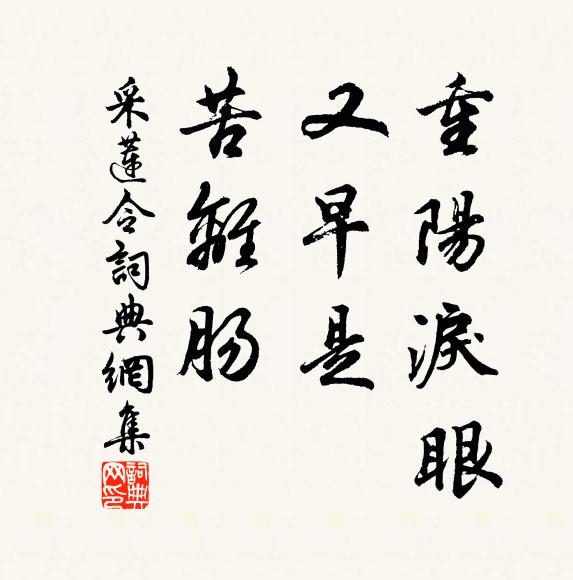 重陽淚眼
又早是
苦離肠
采蓮令詞典網集
詞典網印